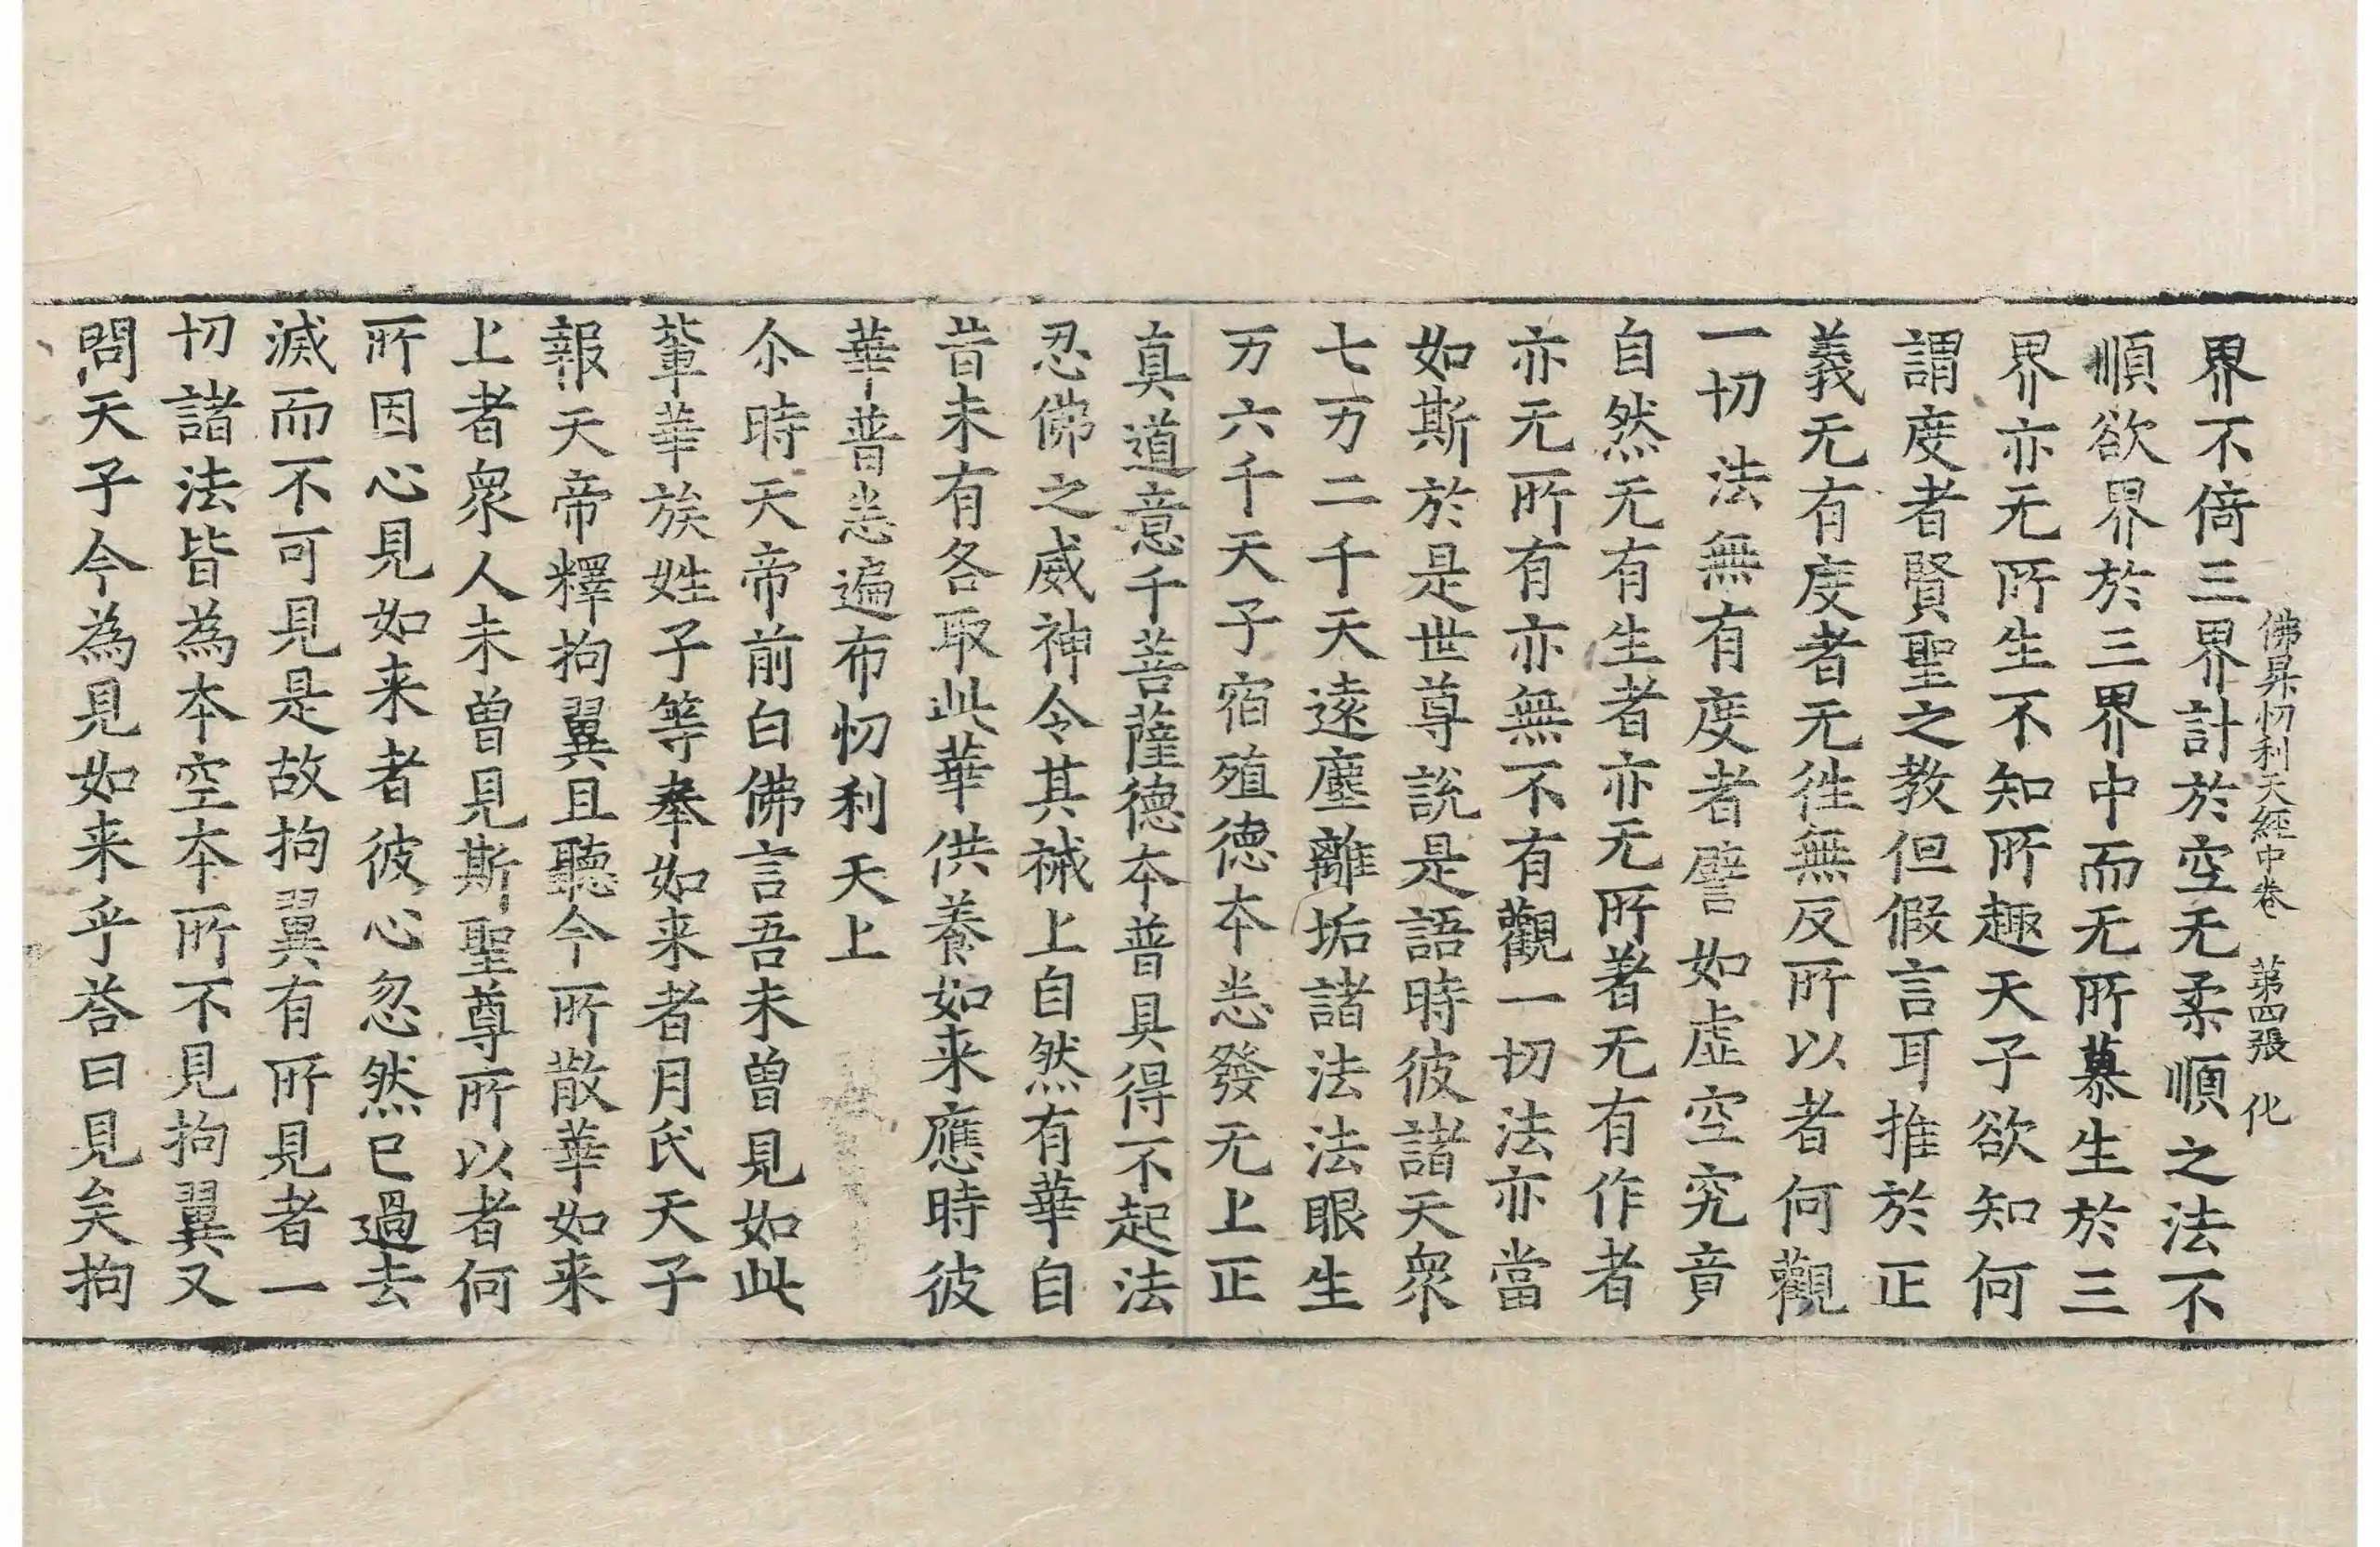 佛昇忉利天經中卷 第四張 化
界不倚三界計於空无柔順之法不
順欲界於三界中而无所慕生於三
界亦无所生不知所趣天子欲知何
謂度者賢聖之教但假言耳推於正
義无有度者无徃無反所以者何觀
一切法無有度者譬如虛空究竟
自然无有生者亦无所著无有作者
亦无所有亦無不有觀一切法亦當
如斯於是世尊說是語時彼諸天衆
七万二千天遠塵離垢諸法法眼生
万六千天子宿殖德本悉發无上正
真道意千菩薩德本普具得不起法
忍佛之威神令其祴上自然有華自
昔未有各取此華供養如来應時彼
華普悉遍布忉利天上
尒時天帝前白佛言吾未曽見如此
輩華族姓子等奉如来者月氏天子
報天帝釋拘翼且聽今所散華如来
上者衆人未曽見斯聖尊所以者何
所因心見如来者彼心忽然已過去
滅而不可見是故拘翼有所見者一
切諸法皆為本空本所不見拘翼又
問天子今為見如来乎荅曰見矣拘